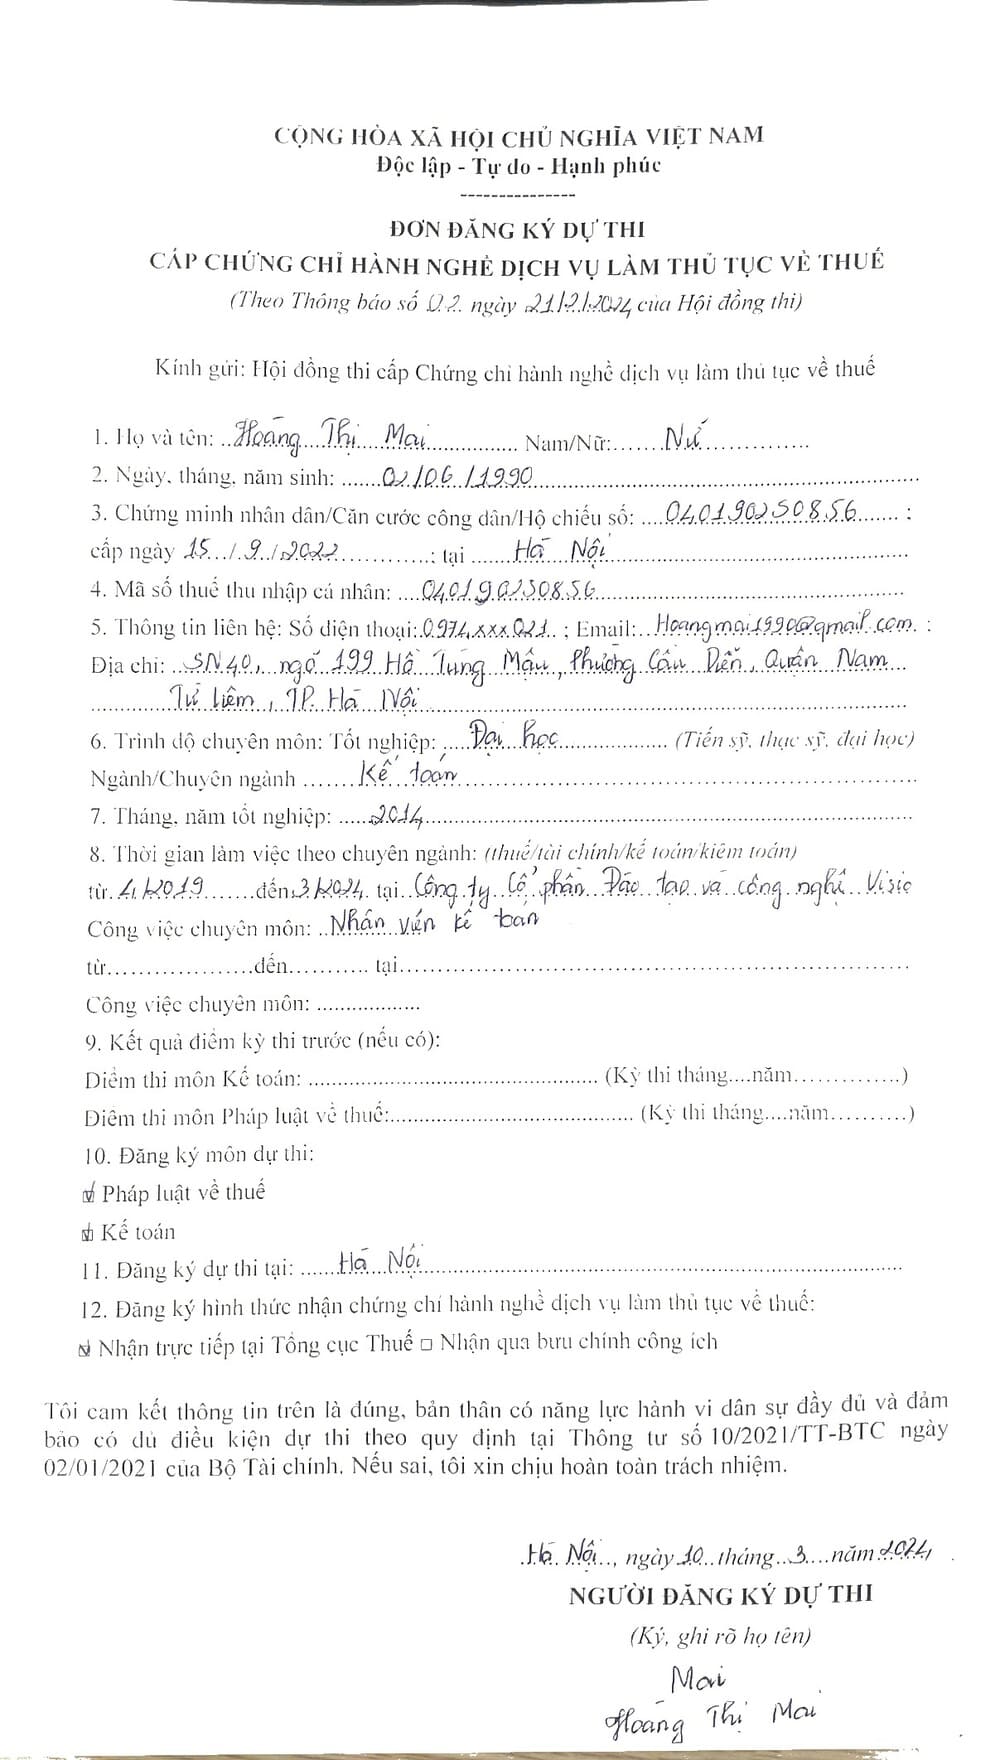 CỘNG HÒA XÃ HỘI CHỦ NGHĨA VIỆT NAM
Độc lập - Tự do - Hạnh phúc
---------------
ĐƠN ĐĂNG KÝ DỰ THI
CẤP CHỨNG CHỈ HÀNH NGHỀ DỊCH VỤ LÀM THỦ TỤC VỀ THUẾ
(Theo Thông báo số 02. ngày 21/2/2024 của Hội đồng thi)
Kính gửi: Hội đồng thi cấp Chứng chỉ hành nghề dịch vụ làm thủ tục về thuế
1. Họ và tên: ..Hoàng Thị Mai............... Nam/Nữ:.......Nữ...............
2. Ngày, tháng, năm sinh: ......02/06/1990......................................
3. Chứng minh nhân dân/Căn cước công dân/Hộ chiếu số: ....040190250856...... ;
cấp ngày 15../.9./.2022..............; tại ......Hà Nội......................................
4. Mã số thuế thu nhập cá nhân: ....040190250856......................................
5. Thông tin liên hệ: Số điện thoại:.0974.xxx.021.. ; Email:..Hoangmai1990@gmail.com. ;
Địa chỉ: ..SN40, ngõ 199 Hồ Tùng Mậu, Phường Cầu Diễn, Quận Nam
............Từ Liêm, TP. Hà Nội......................................
6. Trình độ chuyên môn: Tốt nghiệp: ....Đại học.................. (Tiến sỹ, thạc sỹ, đại học)
Ngành/Chuyên ngành .......Kế toán......................................
7. Tháng, năm tốt nghiệp: .....2014......................................
8. Thời gian làm việc theo chuyên ngành: (thuế/tài chính/kế toán/kiểm toán)
từ 4/2019.......đến 3/2024. tại Công ty Cổ phần Đào tạo và công nghệ Visio
Công việc chuyên môn: ..Nhân viên kế toán
từ.....................đến............ tại......................................
Công việc chuyên môn: ..................
9. Kết quả điểm kỳ thi trước (nếu có):
Điểm thi môn Kế toán: ...................................... (Kỳ thi tháng....năm..............)
Điểm thi môn Pháp luật về thuế:................................... (Kỳ thi tháng....năm..........)
10. Đăng ký môn dự thi:
☑ Pháp luật về thuế
☑ Kế toán
11. Đăng ký dự thi tại: ......Hà Nội......................................
12. Đăng ký hình thức nhận chứng chỉ hành nghề dịch vụ làm thủ tục về thuế:
☑ Nhận trực tiếp tại Tổng cục Thuế □ Nhận qua bưu chính công ích
Tôi cam kết thông tin trên là đúng, bản thân có năng lực hành vi dân sự đầy đủ và đảm
bảo có đủ điều kiện dự thi theo quy định tại Thông tư số 10/2021/TT-BTC ngày
02/01/2021 của Bộ Tài chính. Nếu sai, tôi xin chịu hoàn toàn trách nhiệm.
.Hà Nội.., ngày 10..tháng..3....năm 2024
NGƯỜI ĐĂNG KÝ DỰ THI
(Ký, ghi rõ họ tên)
Mai
Hoàng Thị Mai